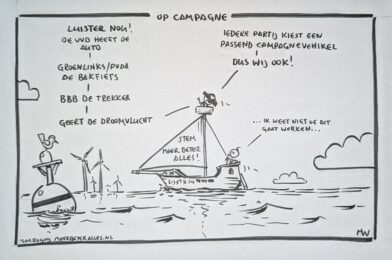 OP CAMPAGNE
LUISTER NOU!
DE VVD HEEFT DE
AUTO
GROENLINKS/PVDA
DE BAKFIETS
BBB DE TREKKER
GEERT DE DROOMVLUCHT
IEDERE PARTIJ KIEST EEN
PASSEND CAMPAGNEVEHIKEL
DUS WIJ OOK!
...IK WEET NIET OF DIT
GAAT WERKEN...
STEM
MEER BETER
ALLES!
MEERBETERALLES.NL
MW